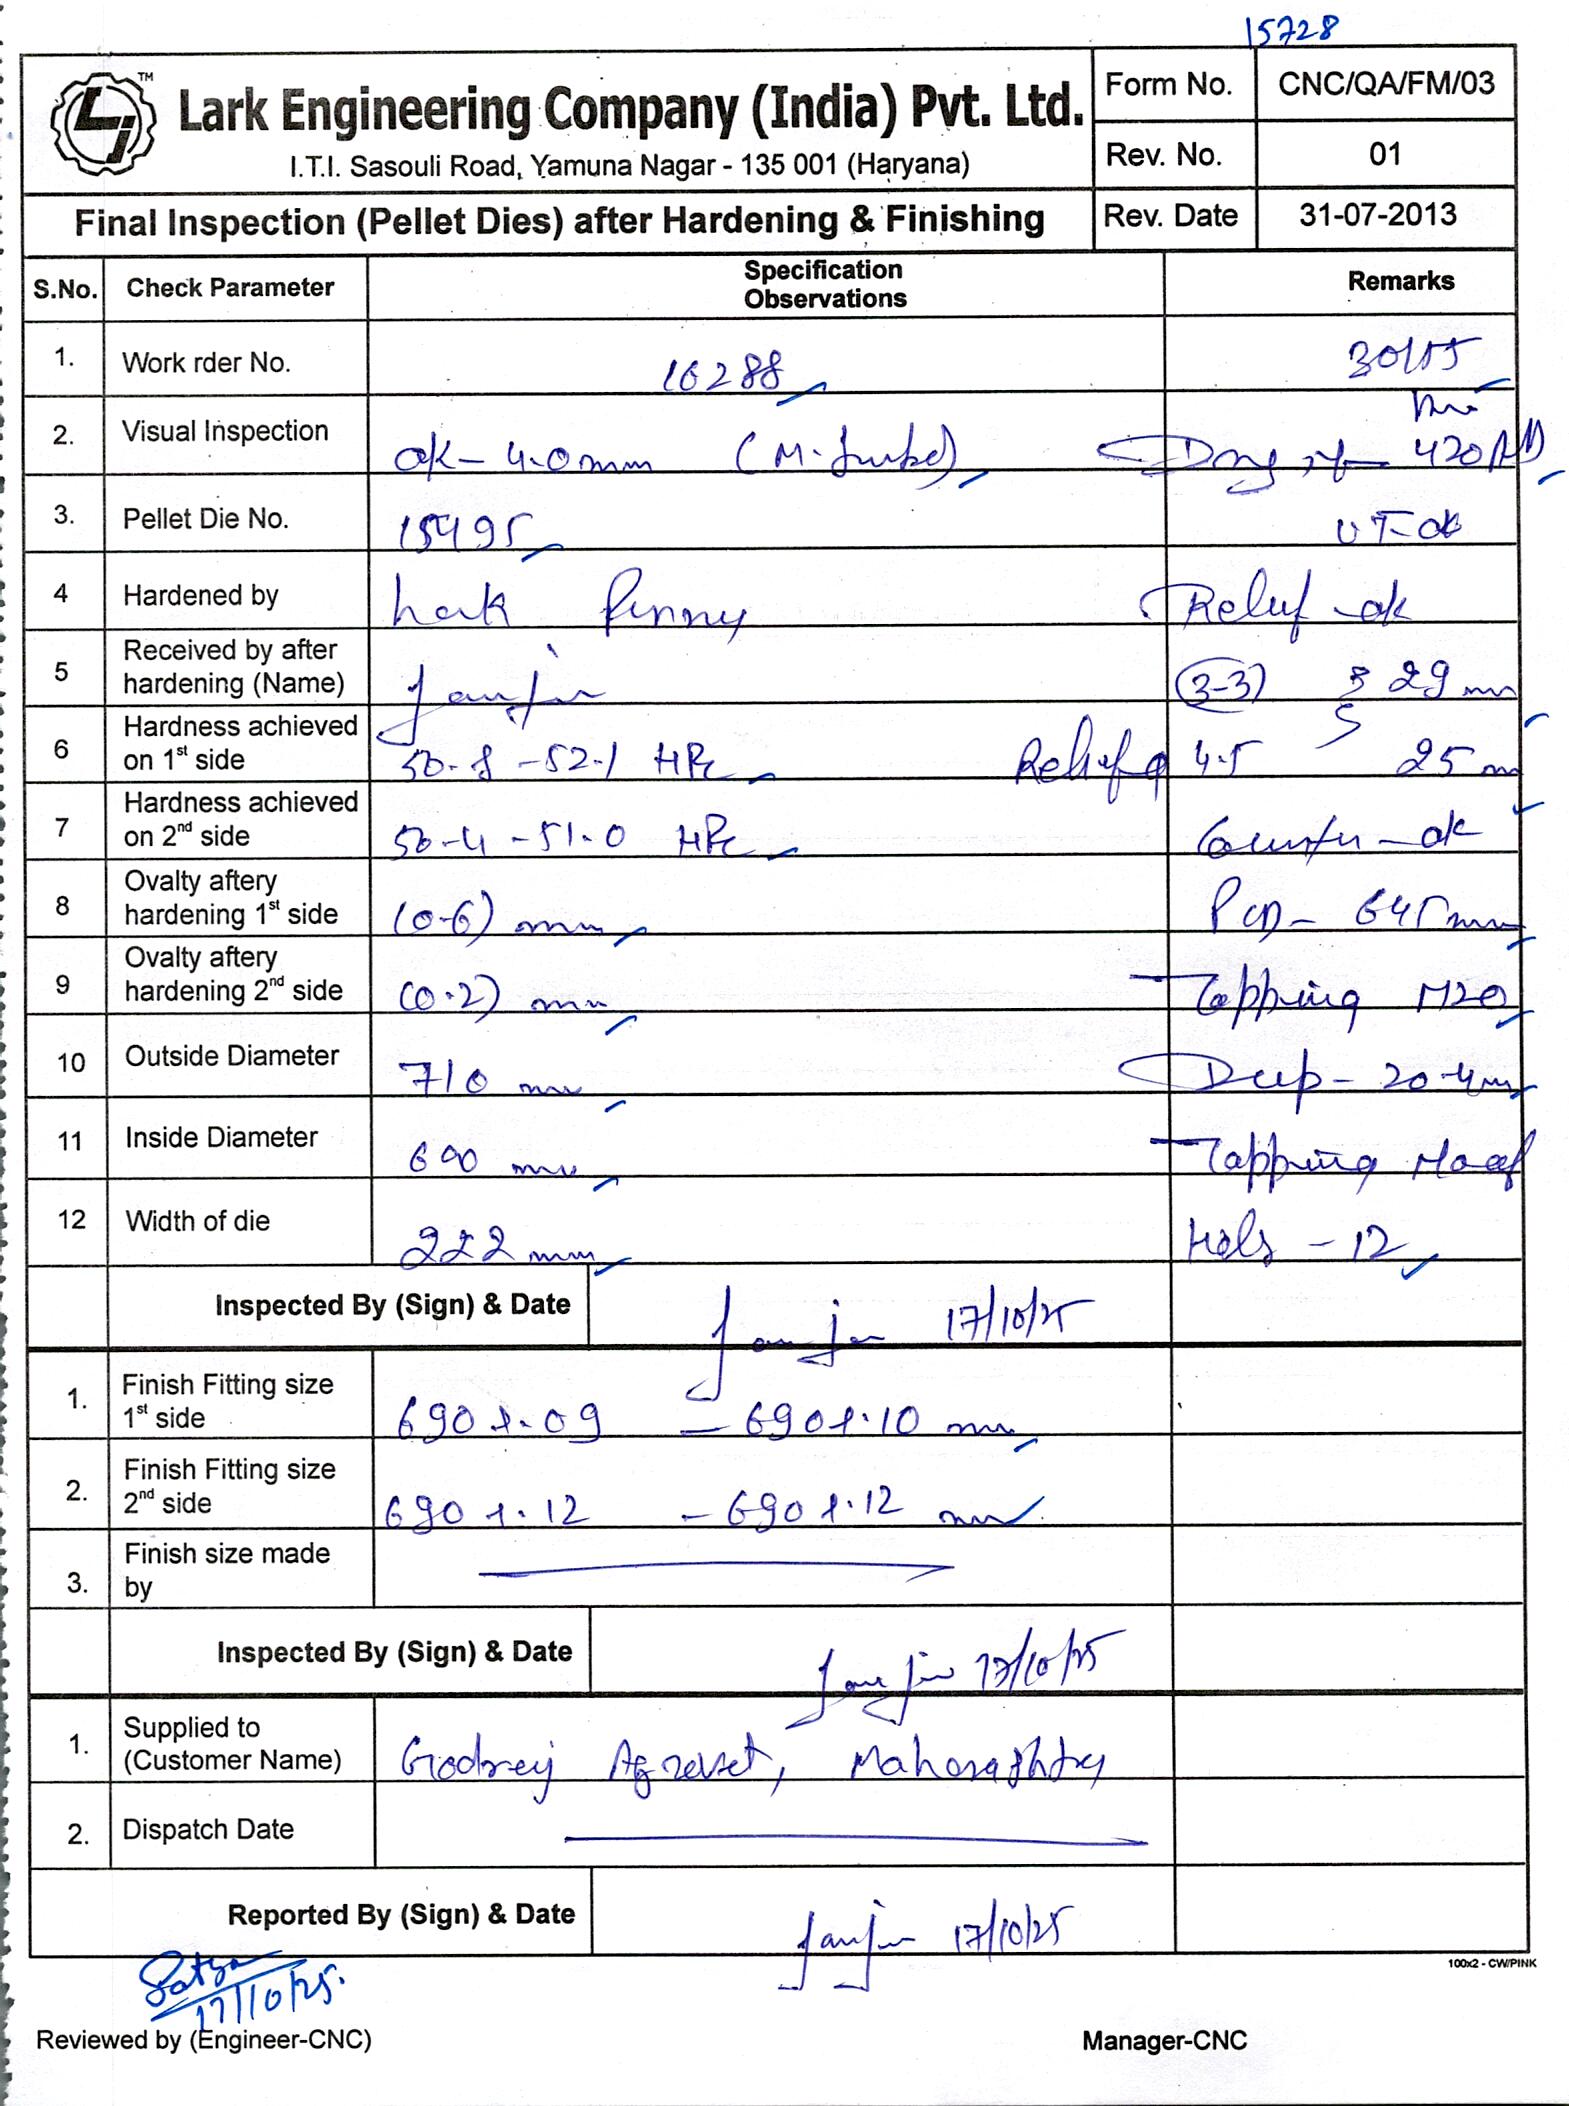 15728
TM
Lark Engineering Company (India) Pvt. Ltd.
I.T.I. Sasouli Road, Yamuna Nagar - 135 001 (Haryana)
Form No. CNC/QA/FM/03
Rev. No. 01
Final Inspection (Pellet Dies) after Hardening & Finishing
Rev. Date 31-07-2013
S.No. Check Parameter Specification Observations Remarks
1. Work rder No. 16288
2. Visual Inspection ok - 4.0 mm 420
3. Pellet Die No. 15495 UT-ok
4 Hardened by Relief - ok
5 Received by after hardening (Name) (3-3) 29 mm
6 Hardness achieved on 1st side 50.8 - 52.1 HRc Relief φ 4.5 25 mm
7 Hardness achieved on 2nd side 50.4 - 51.0 HRc Counter - ok
8 Ovalty aftery hardening 1st side (0.6) mm PCD - 645 mm
9 Ovalty aftery hardening 2nd side (0.2) mm Tapping M20
10 Outside Diameter 710 mm Deep - 20.4 mm
11 Inside Diameter 600 mm Tapping
12 Width of die 222 mm Hols - 12
Inspected By (Sign) & Date 17/10/25
1. Finish Fitting size 1st side
2. Finish Fitting size 2nd side
3. Finish size made by
Inspected By (Sign) & Date 17/10/25
1. Supplied to (Customer Name) Godrej Agrovet, Maharashtra
2. Dispatch Date
Reported By (Sign) & Date 17/10/25
100x2 - CW/PINK
17/10/25.
Reviewed by (Engineer-CNC) Manager-CNC